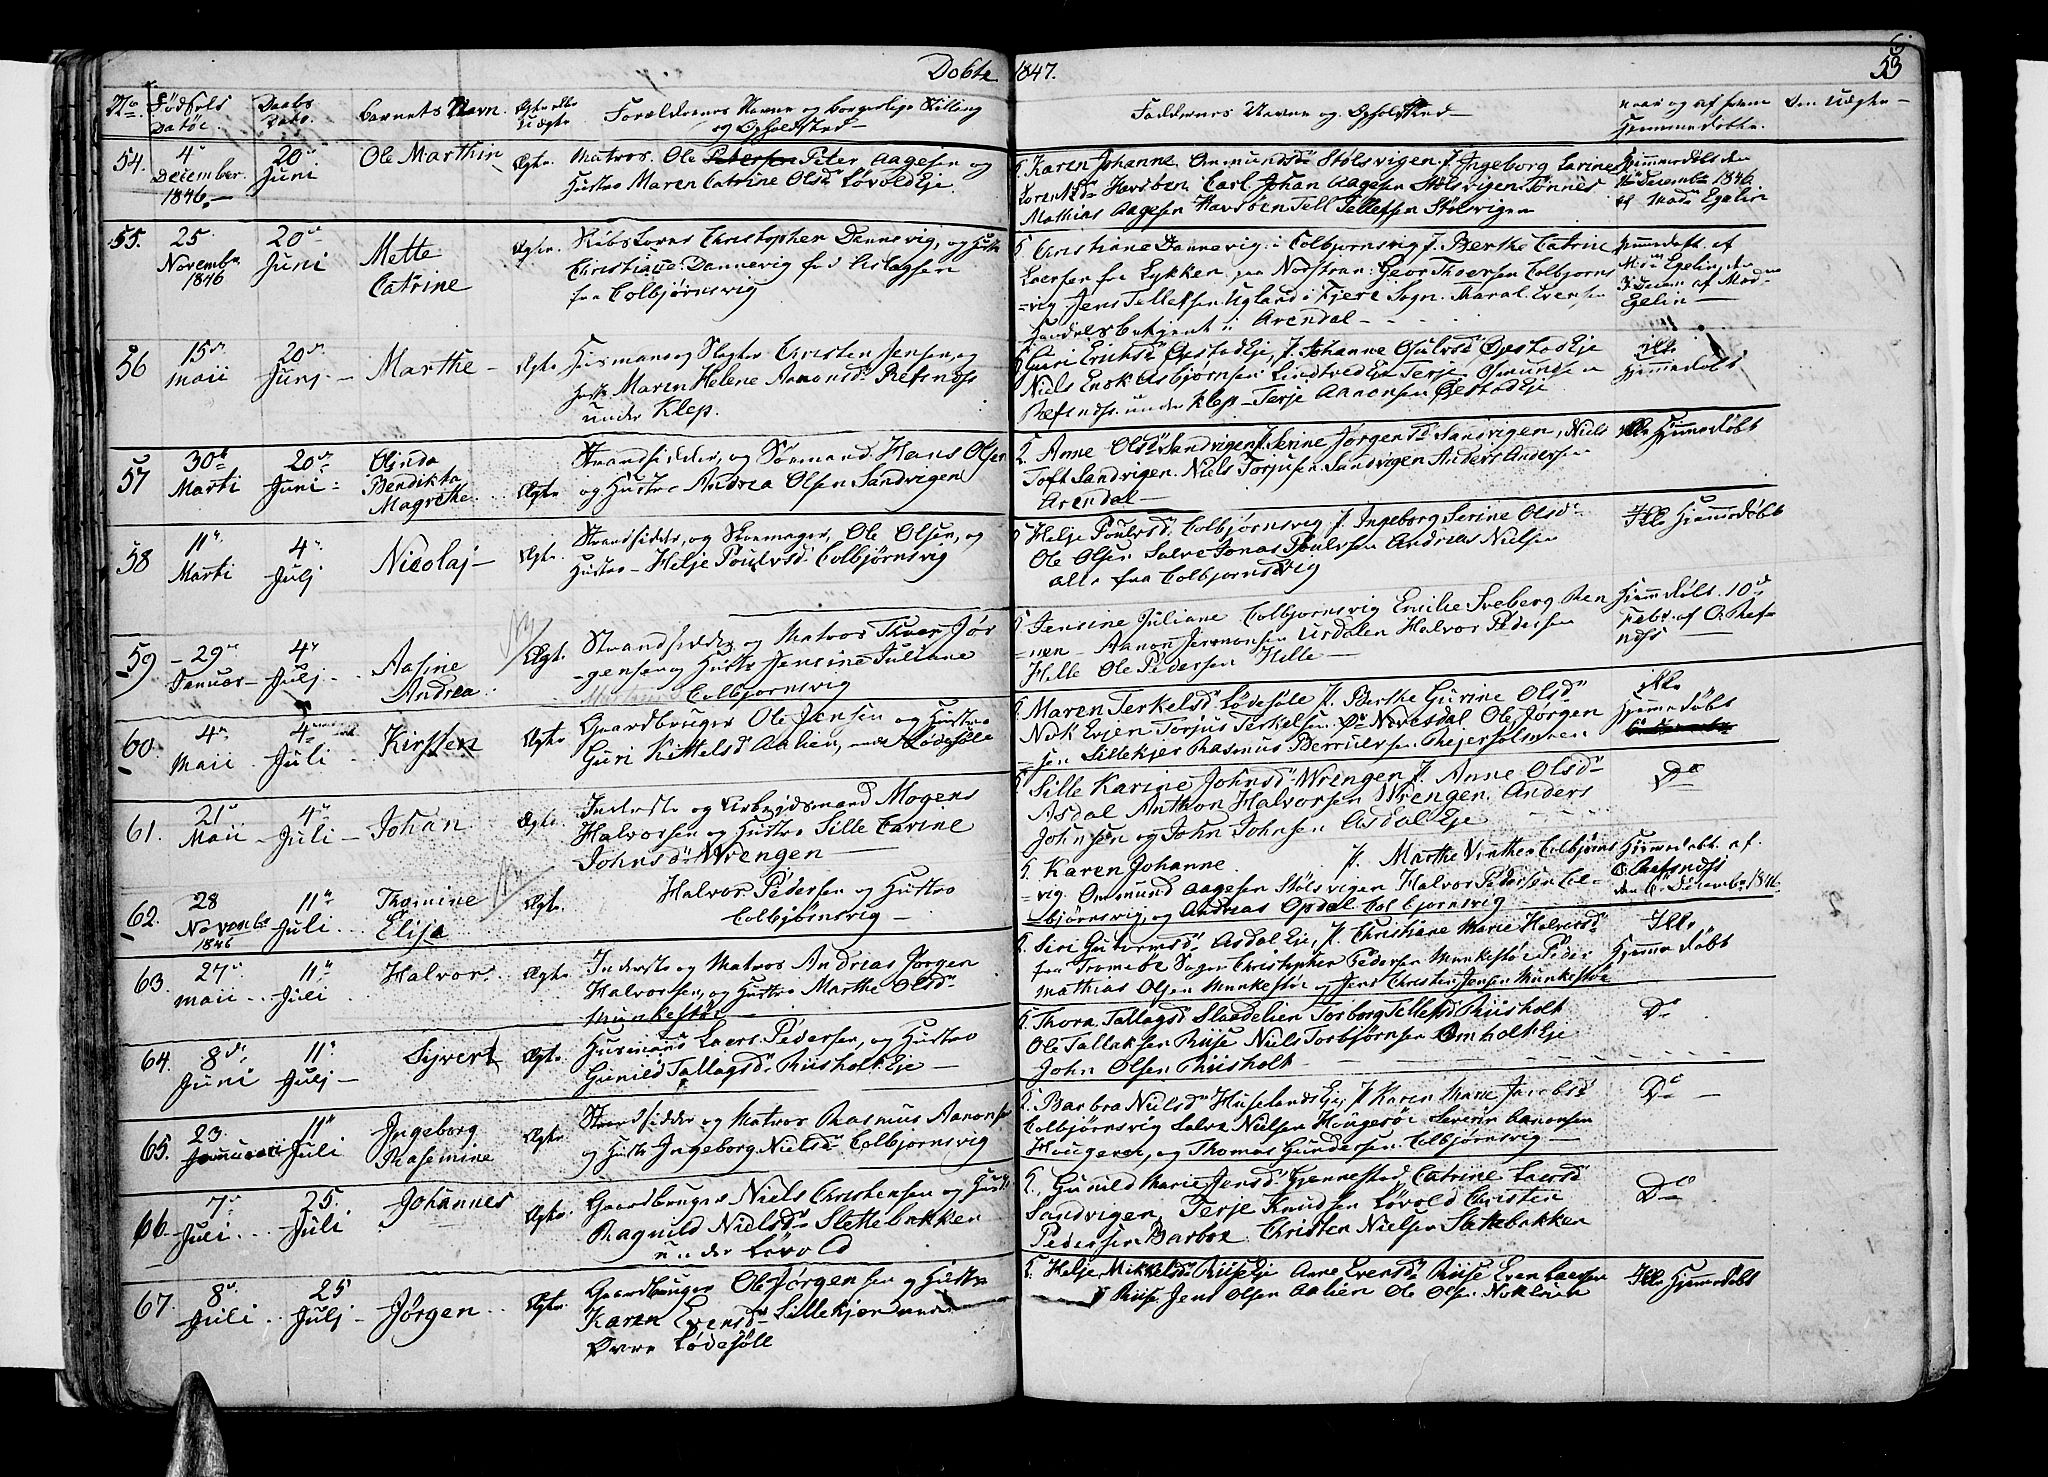 Døbte 1847. 53
No Fødsels Datoe. Daabs Dato. Barnets Navn. Ægte eller Uægte Forældrenes Navne og borgerlige Stilling og Opholdsted Faddernes Navne og Opholdsted naar og af hvem Hjemmedøbte.
54. 4de December 1846. 20de Juni Ole Marthin Ægte. Matros Ole Peter Aagesen og
Hustro Maren Catrine Olsdr Løvold Eje
Karen Johanne Ommundsdr Stølsvigen, J. Ingeborg Larine
Lorentsdr Havsøen, Carl Johan Aagesen Stølsvigen Tønnes
Mathias Aagesen Havsøen Tell Tellefsen Stølsvigen
55. 25 Novembr 1846 20de Juni Mette Catrine Ægte. Christopher Dannevig, og Hustro
Christiane Dannevig fød Aslagsen
fra Colbjørnsvig
Christiane Dannevig i Colbjørnsvig J. Berthe Catrine
Laersen fra Lykken paa Georg Thorsen Colbjørns
=vig Jens Tellefsen Ugland i Fjere Sogn. Evensen
i Arendal
56 15de Maii 20de Junj Marthe Ægte Husmand og Christen Jensen, og
Maren Helene Aanonsdr Refsnæs
under Klep.
Guri Erichsdr Øxstad Eje, J. Johanne Osulvsdr Øxstad Eje
Niels Asbjørnsen Lindtved Eje Terje Osmundsen
under Klep Terje Aanonsen Øxstad Eje
ikke hjemmedøbt
57 30te Marti 20de Juni Olinda Bendikta Magrethe Ægte Strandsidder, og Sømand Hans Olsen
og Hustro Andrea Olsen Sandvigen
Anne Olsdr Sandvigen J. Serine Jørgensdr Sandvigen, Niels
Toft Sandvigen. Niels Torjusen Sandvigen Anders Andersen
Arendal
Ikke hjemmedøbt
58 11te Marti 4de Julj Nicolaj Ægte Strandsidder, og Skomager, Ole Olsen, og
Hustro Helje Poulvsdr Colbjørnsvig
Helje Poulvsdr Colbjørnsvig J. Ingeborg Serine Olsdr
Ole Olsen Salve Jonas Poulvsen Andreas Nielsen
alle fra Colbjørnsvig
Ikke hjemmedøbt
59 29de Januar 4de Julj Aasine Andrea Ægte. Strandsidder og Matros Thor Jør
=gensen og Hustro Jensine Juliane
Colbjørnsvig
Jensine Juliane Colbjørnsvig Emilie Sveberg
Aanon Halvor Pedersen
Helle Ole Pedersen Helle
Hjemdøbt. 10de Febr. af O. Ref=
næss
60. 4de Maii 4de Juli Kirsten Ægte Gaardbruger Ole Jensen og Hustro
Guri Kittelsdr Aalien, under Lødesøle
Maren Terkelsdr Lødesøle J. Berthe Gurine Olsdr
Torjus Terkelsen Ole Jørgen
=sen Sillekjer Rasmus
ikke hjemmedøbt
61. 21de Maii 4de Juli Johan Ægte. Inderste og Arbejdsmand Mogens
Halvorsen og Hustro Sille Carine
Johnsdr Wrengen
Sille Karine Johnsdr Wrengen J. Anne Olsdr
Asdal Anthon Halvorsen Wrengen. Anders
Johnsen og John Johnsen Asdal Eje
Do
62. 28 Novembr 1846 11te Juli Thomine Elise Ægte. Halvor Pedersen og Hustro
Colbjørnsvig
Karen Johanne. J. Marthe Vinther Colbjørns
=vig. Ommund Aagesen Stølsvigen Halvor Pedersen Col
=bjørnsvig, og Andreas Opdal Colbjørnsvig
Hjemmedøbt. af
O. Refsnæss
63. 27de Maii 11te Juli Halvor Ægte Inderste og Matros Andreas Jørgen
Halvorsen, og Hustro Marthe Olsdr
Munkestøe
Siri Gutormsdr Asdal Eje, J. Christiane Marie Halvorsdr
fra Tromøe Sogn Christopher Pedersen Munkestøe Peder
Mathias Olsen Munkestøe og Jens Christen Jensen Munkestøe
Ikke hjemmedøbt
64. 8de Juni 11te Julj Syvert Ægte Husmand Laers Pedersen, og Hustro
Gunild Tallagsdr Riisholt Eje
Thora Tallagsdr Torborg Tellefsdr Riisholt
Ole Tallaksen Riise Niels Torbjørnsen Omholt Eje
John Olsen Riisholt
Do
65. 23 Januari 11te Juli Ingeborg Rasemine Ægte. Strandsidder og Matros Rasmus Aanonsen
og Hustro Ingeborg Nielsdr Colbjørnsvig
Barbra Nielsdr Huselands Eje, J. Karen Marie Jacobsdr
Colbjørnsvig Salve Nielsen Severin Aanonsen
og Thomas Gundersen Colbjørnsvig
Do
66. 7de Juli 25. Juli Johannes Ægte. Gaardbruger Niels Christensen og Hustro
Ragnild Nielsdr Slettebakken
under Løvold
Gunild Marie Jensdr Gjennestad, Catrine Laersdr
Sandvigen, Terje Knudsen Løvold Christen
Pedersen Barboe Christen Nielsen Slettebakken
Do
67. 8de Juli 25 Julj Jørgen Ægte. Gaardbruger Ole Jørgensen og Hustro
Karen Evensdr Sillekjær under
Øvre Lødesøle
Helje Mikkelsdr Riis Eje Anne Evensdr Riise Even Laersen
Riise, Jens Olsen Aalien Ole Olsen
Ikke hjemmedøbt